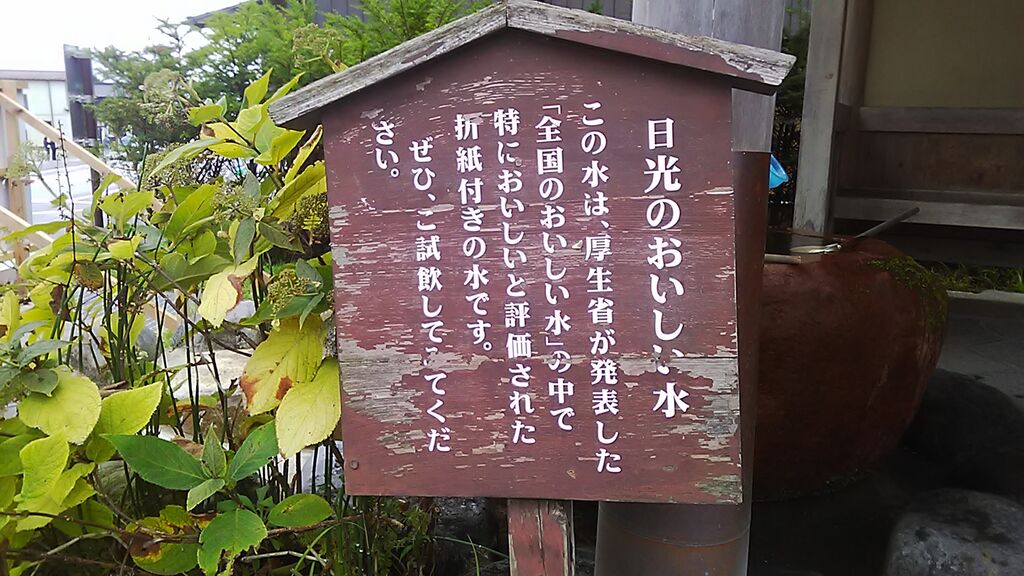 日光のおいしい水
この水は、厚生省が発表した
「全国のおいしい水」の中で
特においしいと評価された
折紙付きの水です。
ぜひ、ご試飲してみてくだ
さい。